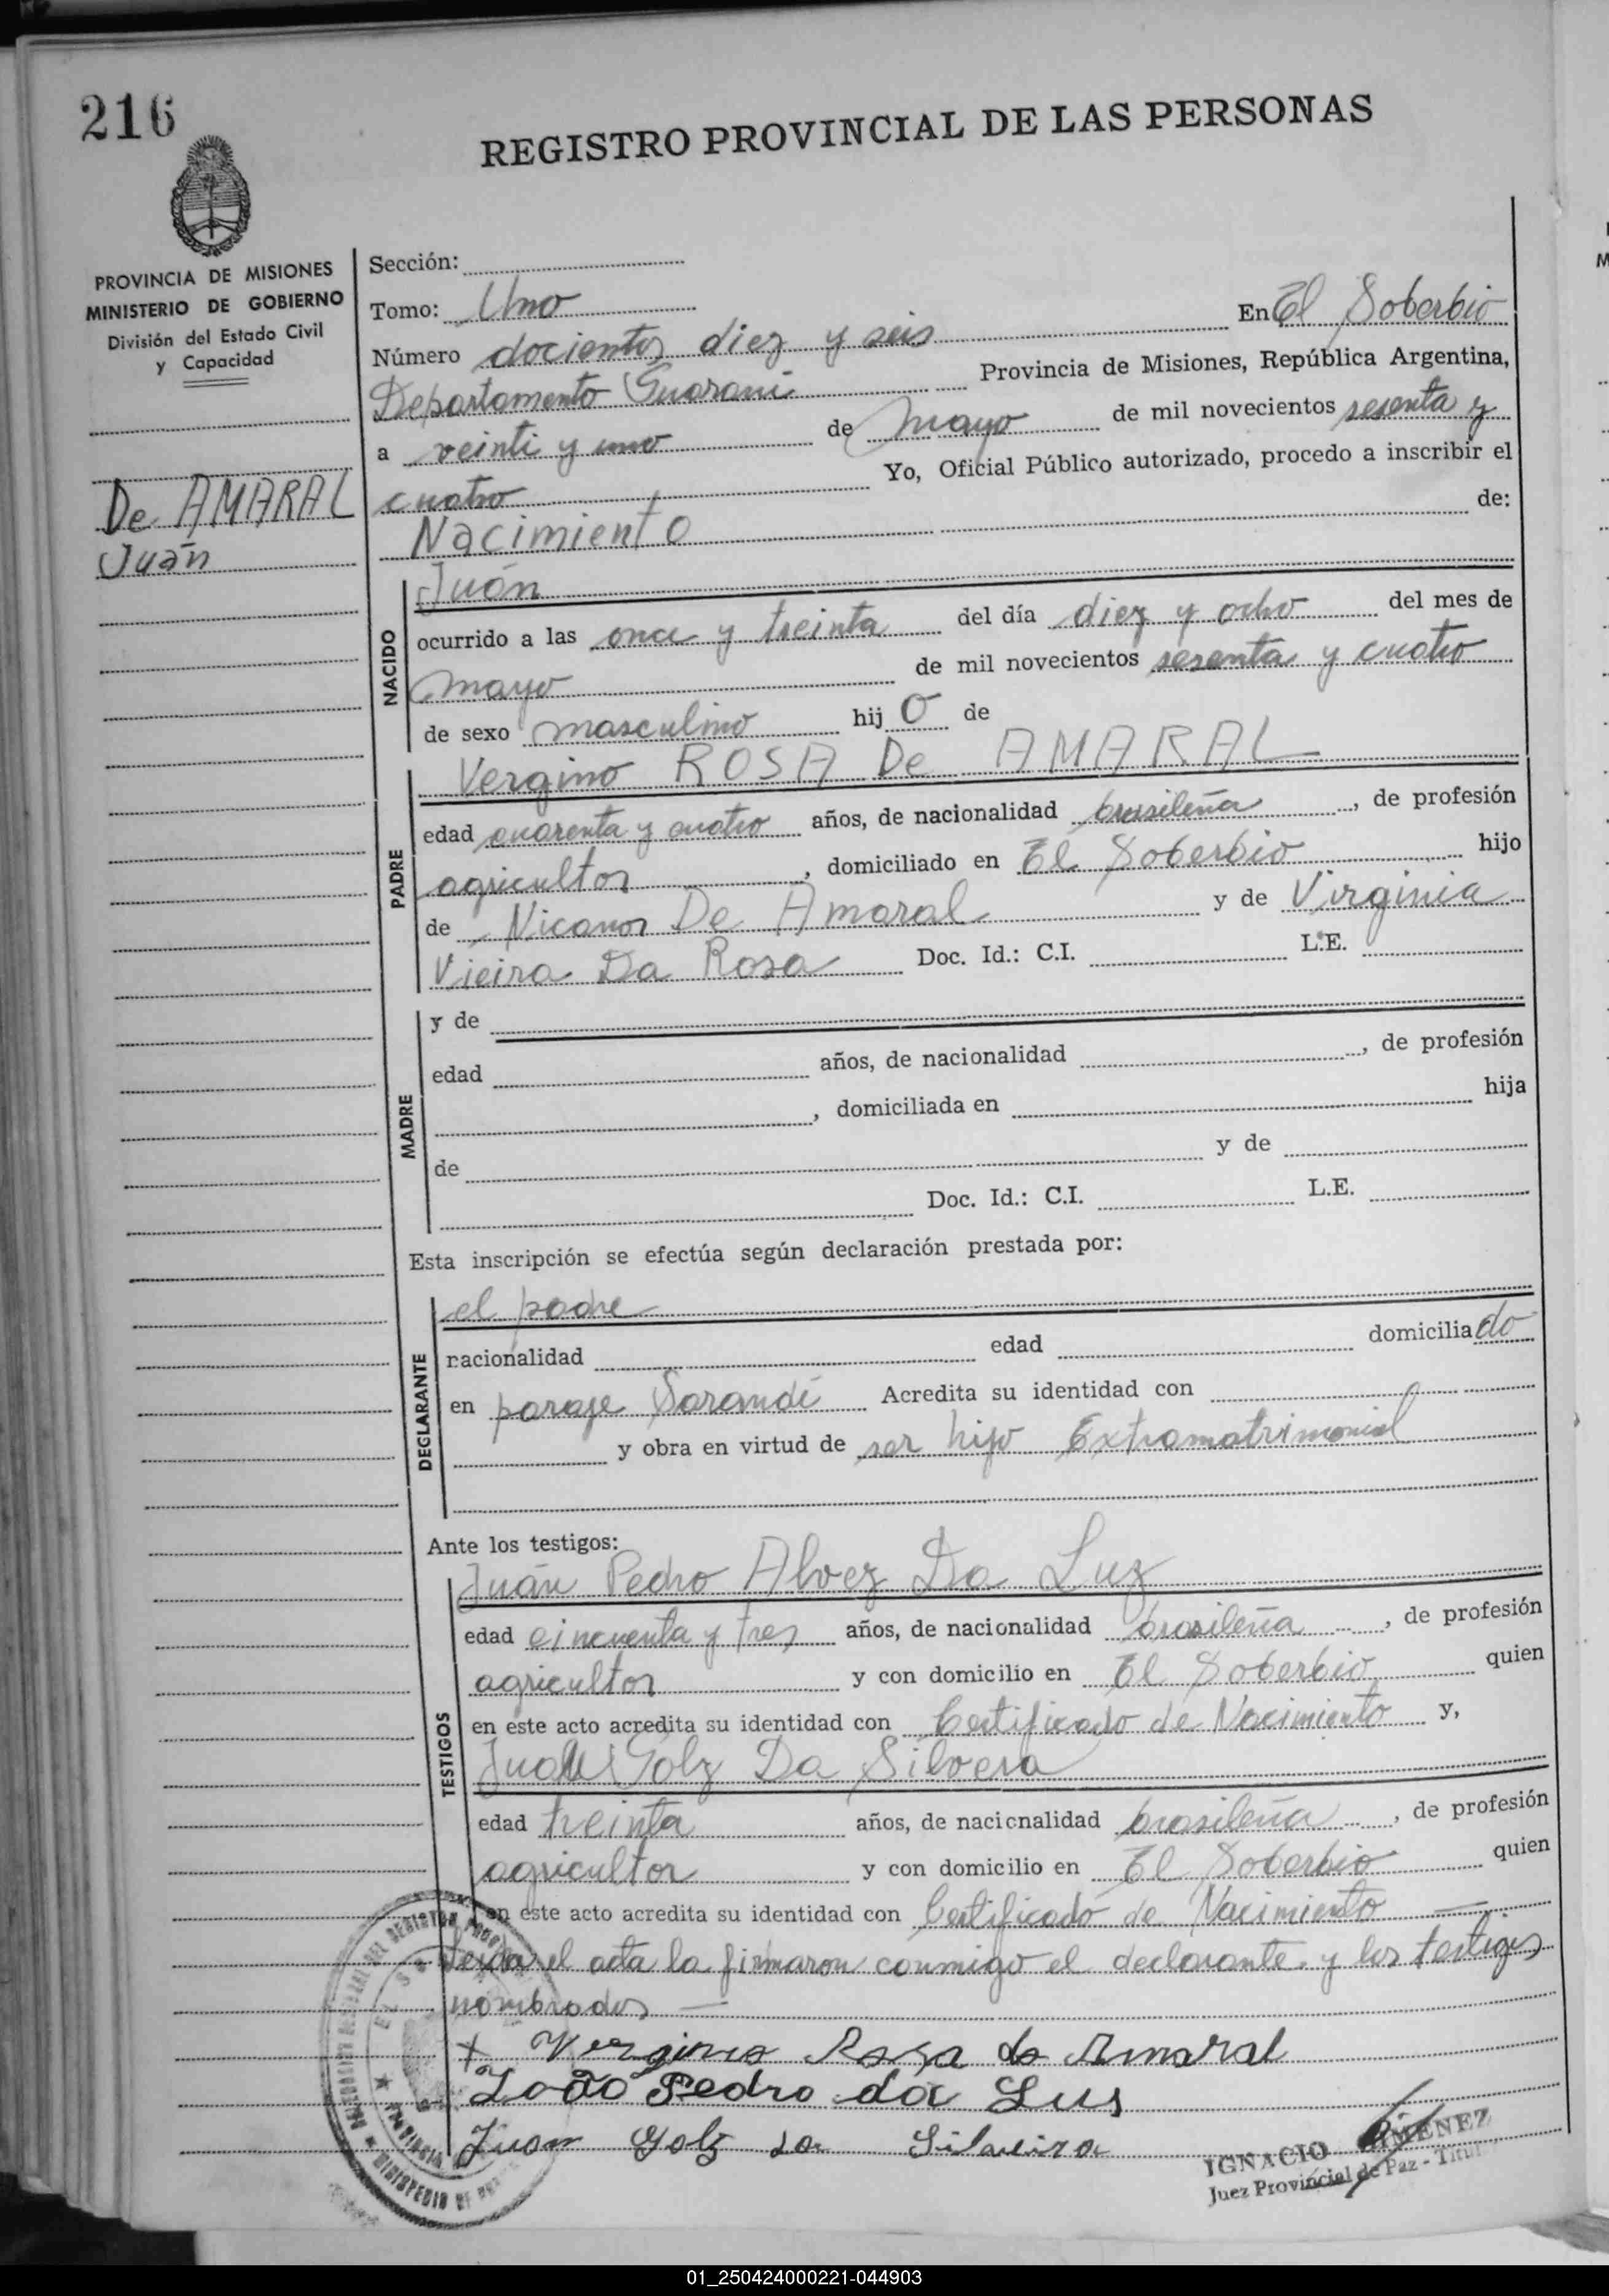 216
REGISTRO PROVINCIAL DE LAS PERSONAS
PROVINCIA DE MISIONES
MINISTERIO DE GOBIERNO
División del Estado Civil
y Capacidad
De AMARAL
Juán
Sección:
Tomo: Uno
En El Soberbio
Número docientos diez y seis
Departamento Guarani Provincia de Misiones, República Argentina,
a veinti y uno de mayo de mil novecientos sesenta y
cuatro Yo, Oficial Público autorizado, procedo a inscribir el
Nacimiento de:
NACIDO
Juán
ocurrido a las once y treinta del día diez y ocho del mes de
mayo de mil novecientos sesenta y cuatro
de sexo masculino hij o de
PADRE
Vergino ROSA De AMARAL
edad cuarenta y cuatro años, de nacionalidad brasileña, de profesión
agricultor, domiciliado en El Soberbio hijo
de Nicanor De Amaral y de Virginia
Vieira Da Rosa Doc. Id.: C.I. L.E.
MADRE
y de
edad años, de nacionalidad , de profesión
, domiciliada en hija
de y de
Doc. Id.: C.I. L.E.
Esta inscripción se efectúa según declaración prestada por:
DECLARANTE
el padre
nacionalidad edad domiciliado
en paraje Sarandí Acredita su identidad con
y obra en virtud de ser hijo Extramatrimonial
Ante los testigos:
TESTIGOS
Juán Pedro Alvez Da Luz
edad cincuenta y tres años, de nacionalidad brasileña, de profesión
agricultor y con domicilio en El Soberbio quien
en este acto acredita su identidad con Certificado de Nacimiento y,
Juan Golz Da Silvera
edad treinta años, de nacionalidad brasileña, de profesión
agricultor y con domicilio en El Soberbio quien
en este acto acredita su identidad con Certificado de Nacimiento
el acta la firmaron conmigo el declarante y los testigos
nombrados
Vergino Rosa de Amaral
João Pedro da Lus
Juan Golz da Silveira
IGNACIO GIMENEZ
Juez Provincial de Paz - Titul
01_250424000221-044903